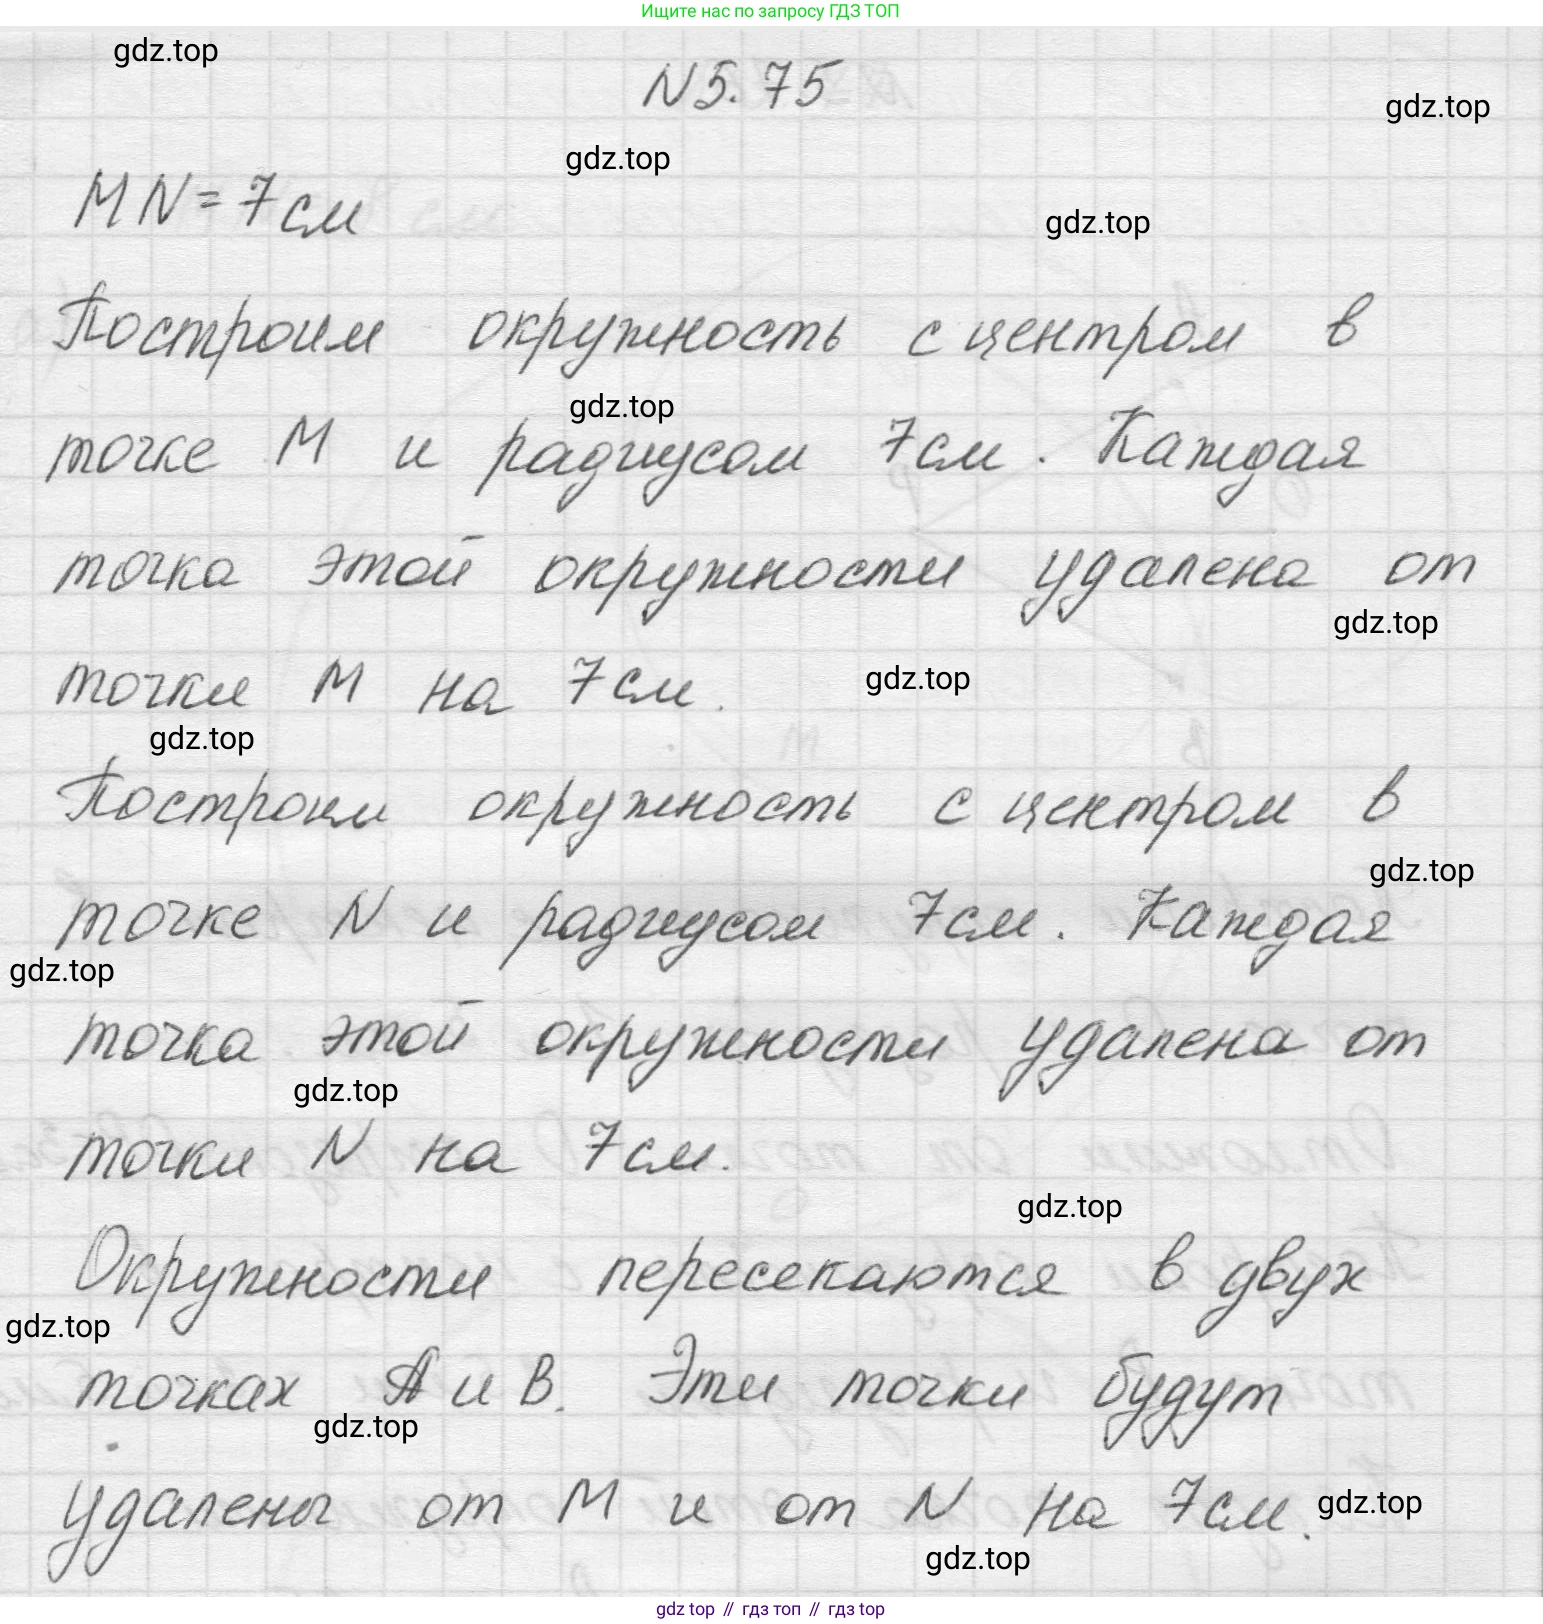 Ищите нас по запросу ГДЗ ТОП
gdz.top
N 5.75
gdz.top
gdz.top
MN = 7 см
gdz.top
Построим окружность с центром в
gdz.top
точке M и радиусом 7 см. Каждая
точка этой окружности удалена от
gdz.top
точки M на 7 см.
gdz.top
gdz.top
Построим окружность с центром в
gdz.top
точке N и радиусом 7 см. Каждая
gdz.top
точка этой окружности удалена от
gdz.top
точки N на 7 см.
gdz.top
Окружности пересекаются в двух
gdz.top
точках A и B. Эти точки будут
gdz.top
удалены от M и от N на 7 см.
gdz.top
gdz.top
gdz top // гдз топ // гдз top